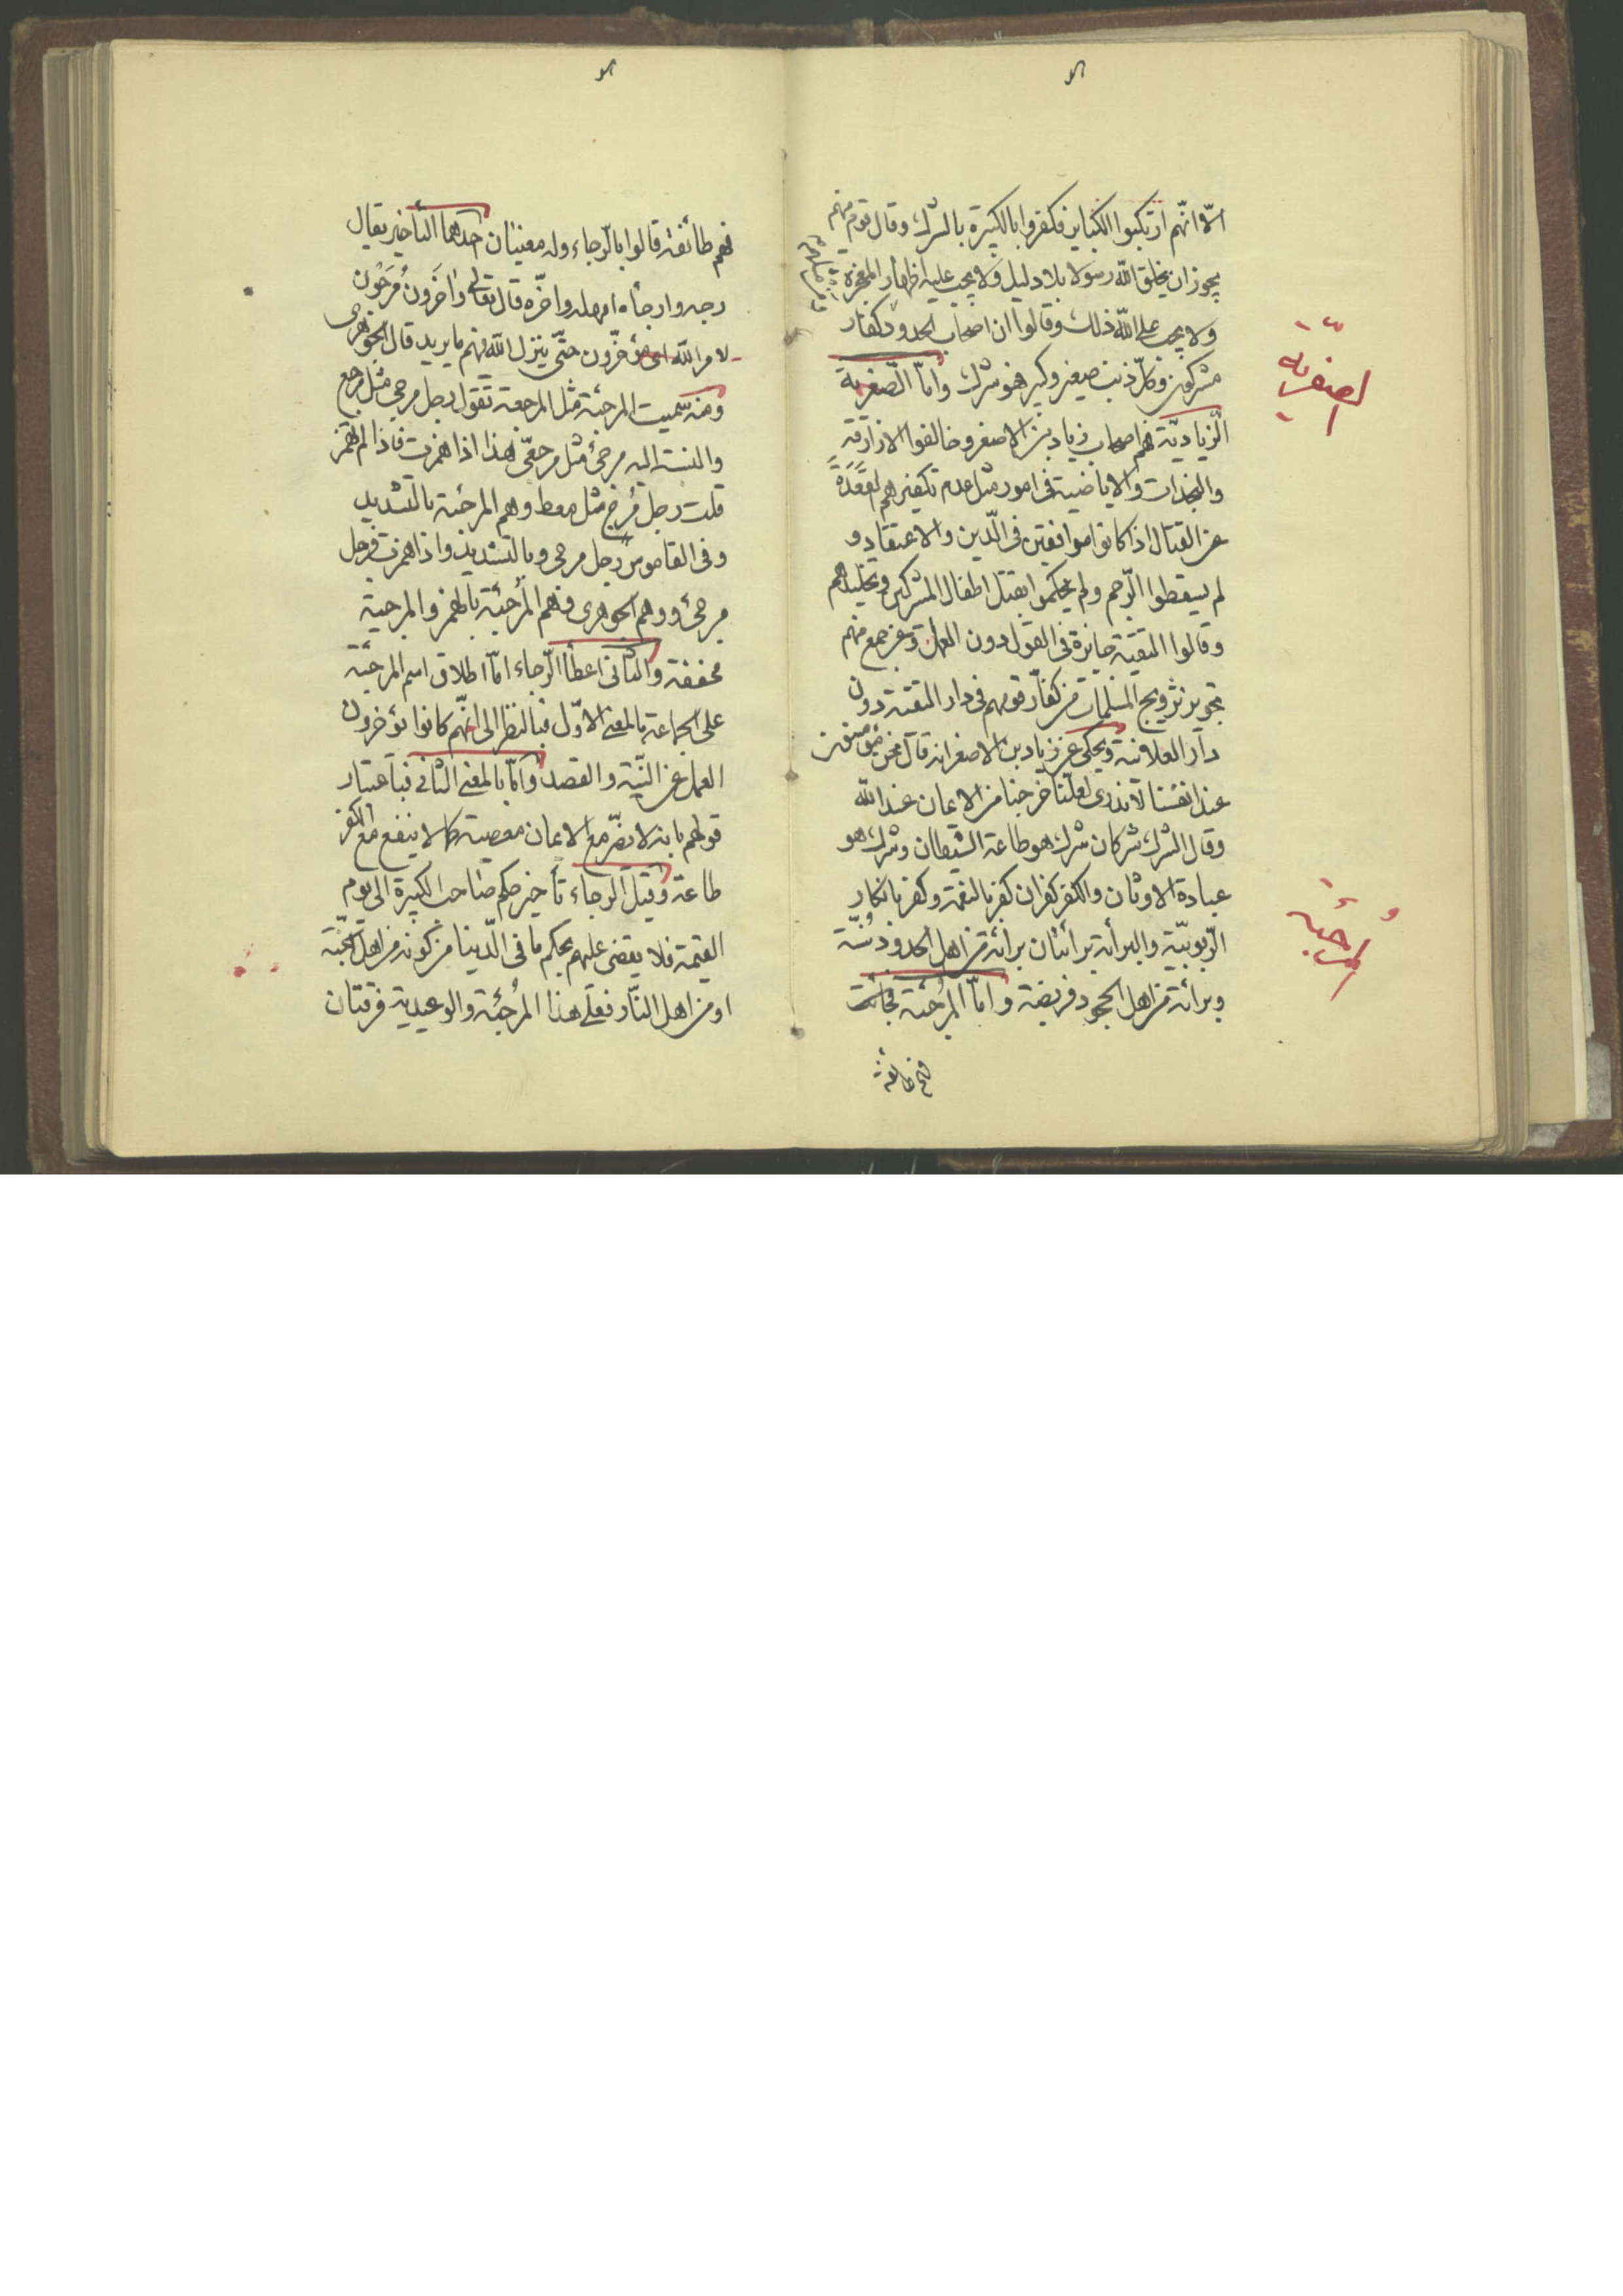 الّا انّهم ارتكبوا الكباير فكفروا بالكبيرة بالشرك وقال قوم منهم
يجوز ان يخلق الله رسولا بلا دليل ولا يجب عليه اظهار المعجزة
ولا يجب على الله ذلك وقالوا ان اصحاب الحدود كفار
مشركون وكلّ ذنب صغير وكبير فهو شرك وامّا الصّفرية
الصّفريّة
الزّياديّة فهم اصحاب زياد بن الاصفر وخالفوا الازارقة
والنجدات والاباضية فى امور مثل عدم تكفيرهم لقعدة
عن القتال اذا كانوا موافقين فى الدّين والاعتقاد و
لم يسقطوا الرّجم ولم يحكموا بقتل اطفال المشركين وتخليدهم
وقالوا التقيّة جايزة فى القول دون العمل وعن جمع منهم
تجويز تزويج المسلمات من كفّار قومهم فى دار التقيّة دون
دار العلانية ويحكى عن زياد بن الاصفر انه قال نحن مؤمنون
عند انفسنا لا ندرى لعلّنا خرجنا من الايمان عند الله
وقال الشرك شركان شرك هو طاعة الشيطان وشرك هو
عبادة الاوثان والكفر كفران كفر بالنعمة وكفر بانكار
الرّبوبيّة والبرأية برائتان برائة من اهل الحدود سُنّة
المُرجئة
وبرائة من اهل الجحود فريضة وامّا المُرجئة
فهم طائفة
فهم طائفة قالوا بالرّجاء وله معنيان احدهما التأخير يقال
رجه وارجأه امهله واخّره قال تعالى وآخَرون مُرجَون
لامر الله اى مؤخّرون حتّى ينزل الله فيهم ما يريد قال الجوهرى
ومنه سمّيت المرجئة مثل المرجعة تقول رجل مرجئ مثل مرجع
والنسبة اليه مرجئى مثل مرجعّى هذا اذا همزت فاذا لم تهمز
قلت رجل مُرجٍ مثل معط وهم المرجية بالتشديد
وفى القاموس رجل مرجى وبالتشديد واذا همزت فرجل
مرجئ ووهم الجوهرى وهم المُرجئة بالهمز والمرجية
مخففة والثانى اعطأ الرّجاء امّا اطلاق اسم المرجئة
على الجماعة بالمعنى الاوّل فبالنظر الى انّهم كانوا يؤخرون
العمل عن النّيّة والقصد وامّا بالمعنى الثانى فباعتبار
قولهم بانه لا تضرّ مع الايمان معصية كما لا ينفع مع الكفر
طاعة وقيل الرجاء تأخير حكم صاحب الكبيرة الى يوم
القيمة فلا يقضى عليهم بحكم ما فى الدّنيا من كونه من اهل الجنّة
او من اهل النّار فعلى هذا المُرجئة والوعيدية فرقتان